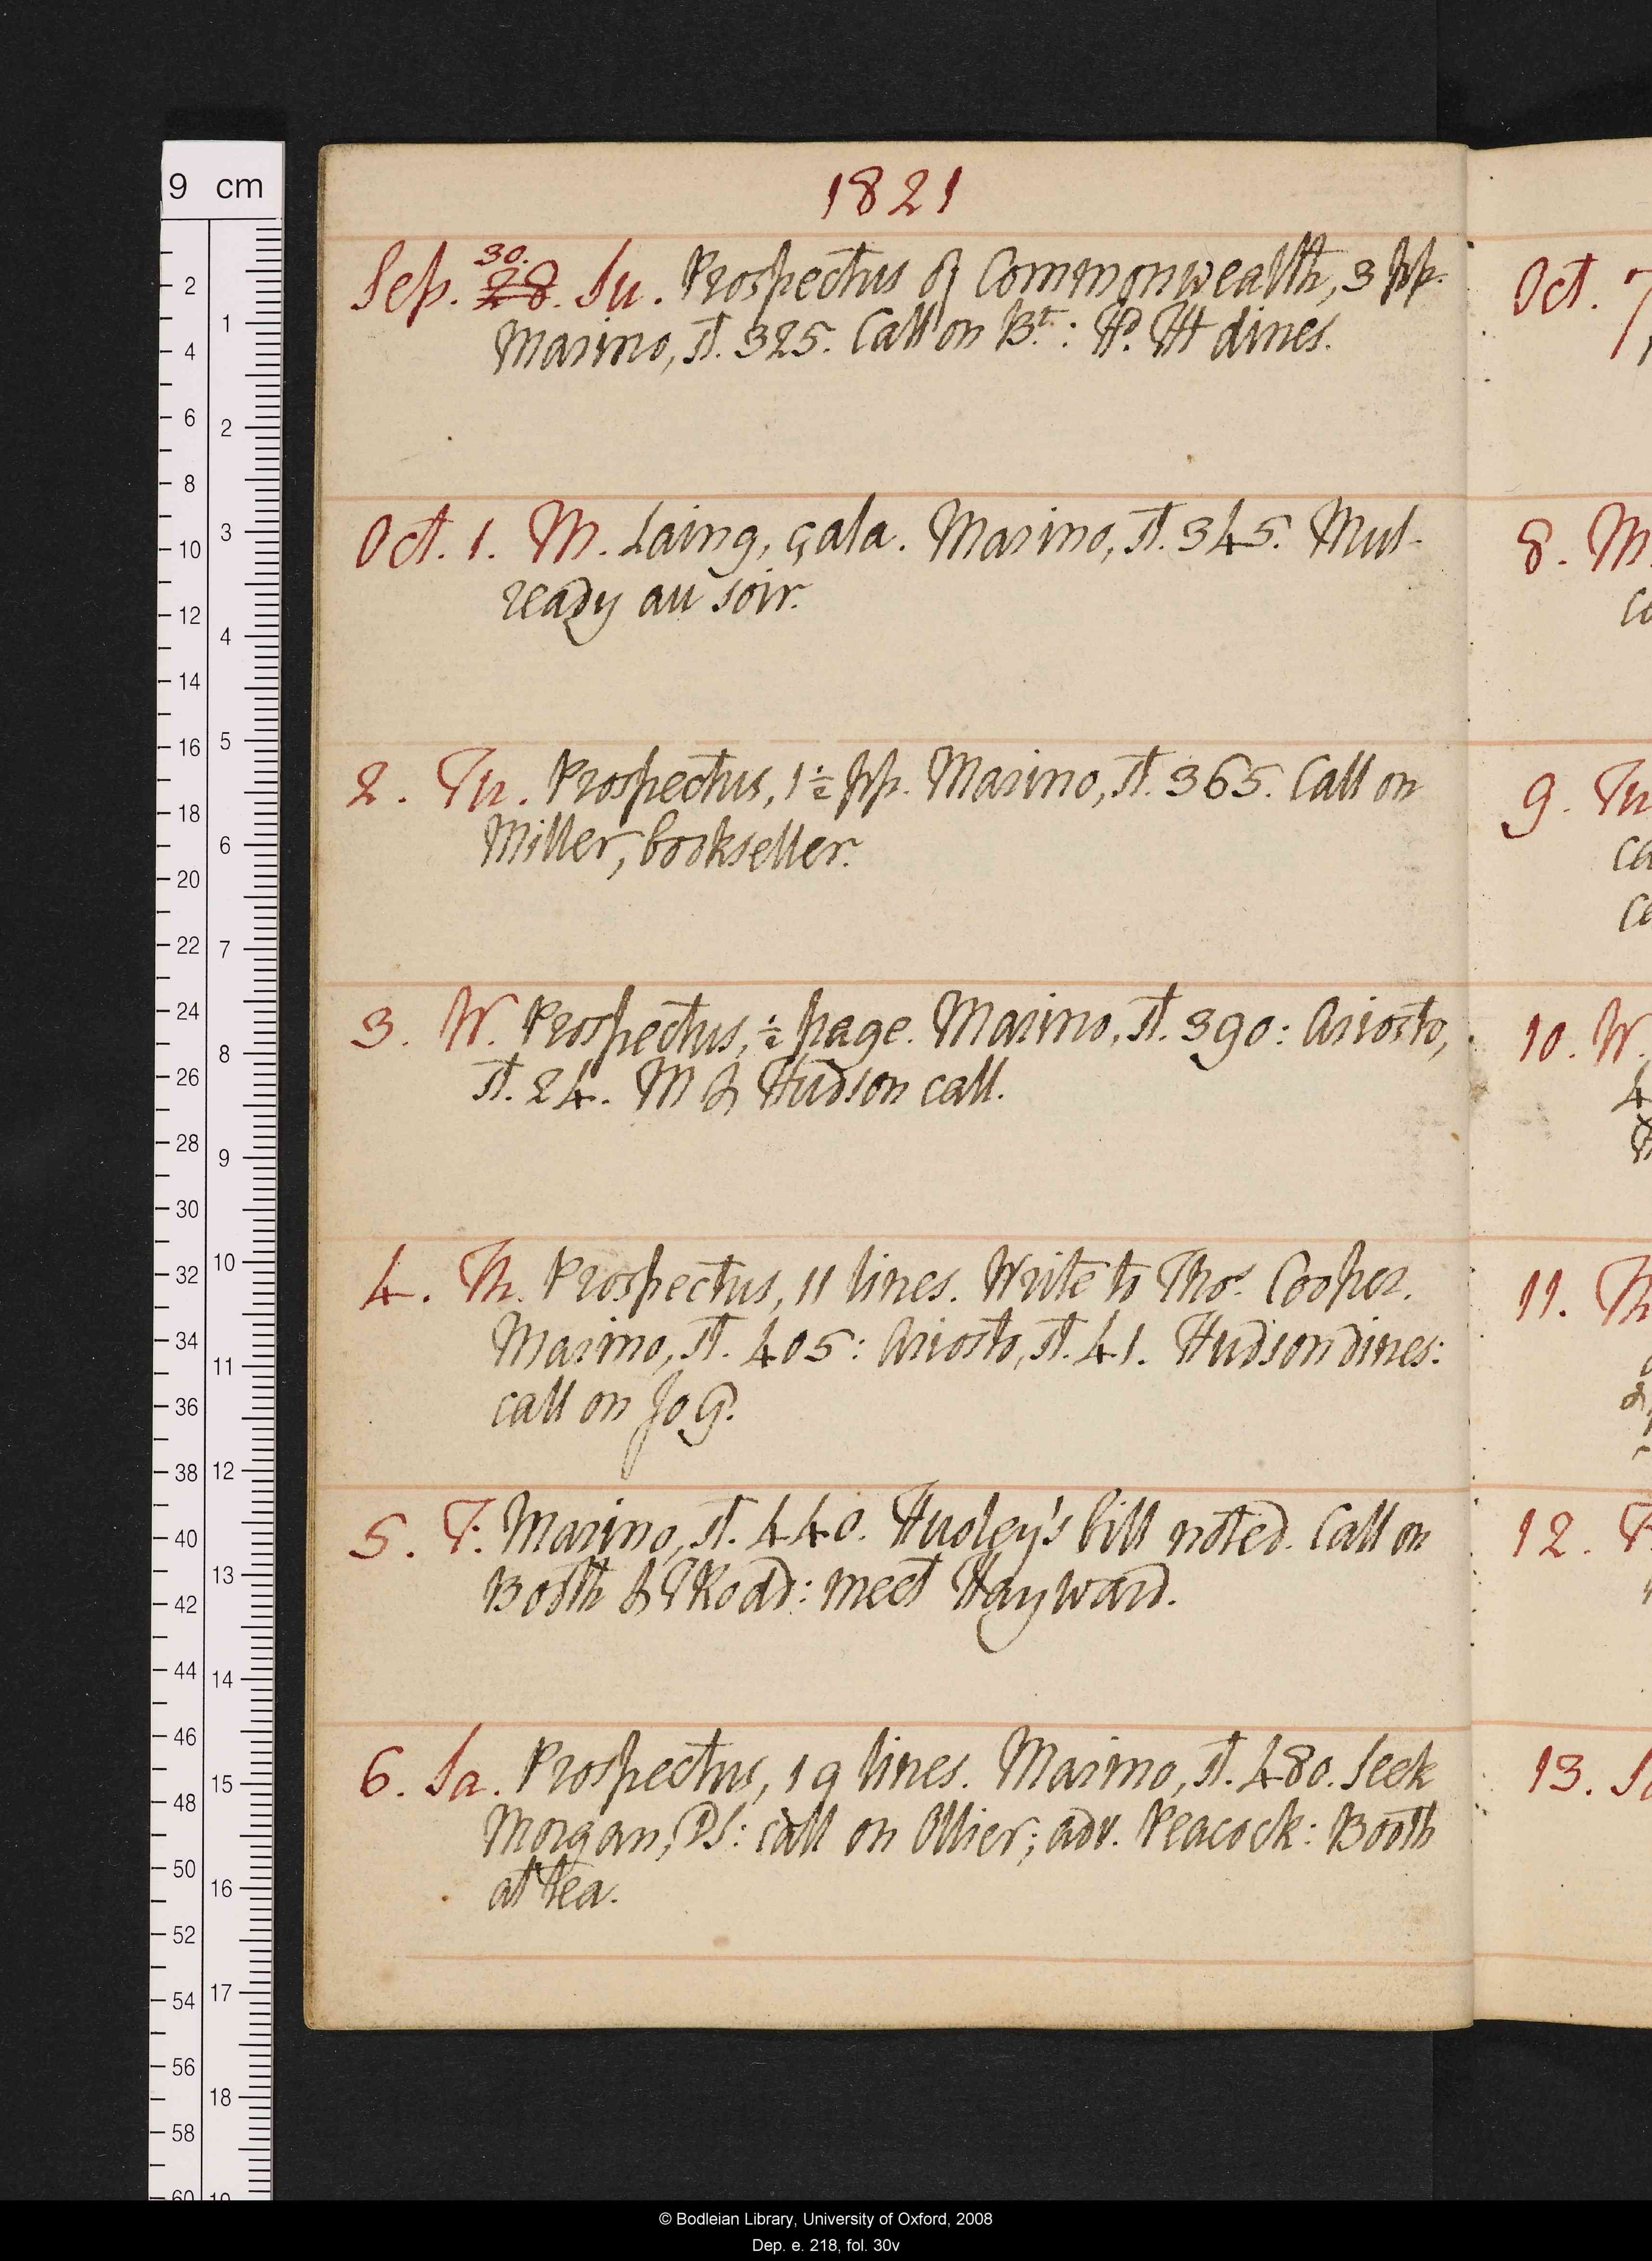 1821
Sep. 30. 28. Su. Prospectus of Commonwealth, 3 pp.
Marino, st. 325. Call on Bt.: Hd. Ht dines.
Oct. 1. M. Laing, çala. Marino, st. 345. Mul-
ready au soir.
2. Tu. Prospectus, 1 1/2 pp. Marino, st. 365. Call on
Miller, bookseller.
3. W. Prospectus, 1/2 page. Marino, st. 390: Ariosto,
st. 24. M & Hudson call.
4. Th. Prospectus, 11 lines. Write to Thos. Cooper.
Marino, st. 405: Ariosto, st. 41. Hudson dines:
call on Jo G.
5. F. Marino, st. 440. Hudley's bill noted. Call on
Booth & Road: meet Hayward.
6. Sa. Prospectus, 19 lines. Marino, st. 480. Seek
Morgan, PS: call on Ollier; adv. Peacock: Booth
at tea.
Oct. 7
8. M.
9. Tu
10. W.
11. Th
12. F
13. Sa
9 cm
2 4 6 8 10 12 14 16 18 20 22 24 26 28 30 32 34 36 38 40 42 44 46 48 50 52 54 56 58 60
1 2 3 4 5 6 7 8 9 10 11 12 13 14 15 16 17 18 19
© Bodleian Library, University of Oxford, 2008
Dep. e. 218, fol. 30v